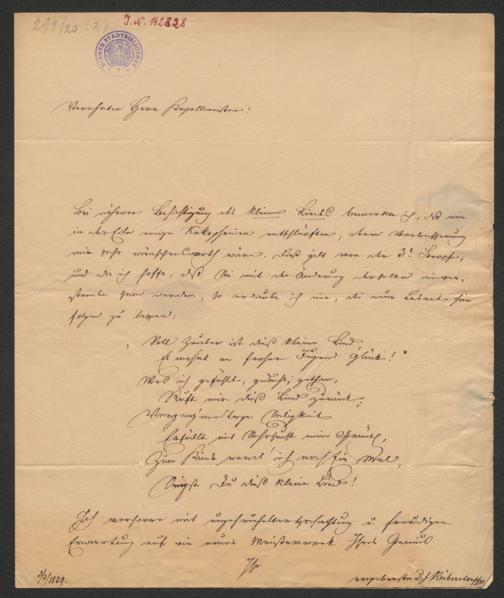 219/20 (2)
I.N. 142828
WIENER STADTBIBLIOTHEK
Verehrter Herr Kapellmeister!
Bei näherer Besichtigung des kleinen Liedes bemerke ich, daß mir
in der Eile einige Kakophonien entschlüpften, deren Verbesserung
mir sehr wünschenswerth wäre. Dieß gilt von der 3t. Strophe,
und da ich hoffe, daß Sie mit der Änderung derselben einver-
standen sein werden, so erlaube ich mir, die neue Lesart hier
folgen zu lassen:
„Voll Zauber ist dieß kleine Lied,
Es mahnt an froher Jugend Glück!"
Was ich gefühlt, gedacht, gethan,
Ruft mir dieß Lied zurück;
Vergang'ner Tage Seligkeit
Erfüllt mit Sehnsucht mein Gemüth,
Zum Kinde werd' ich noch ein Mal,
Singst Du dieß kleine Lied!
Ich verharre mit Hochachtung u. freudiger
Erwartung auf ein neues Meisterwerk Ihres Genius
Ihr
ergebenster